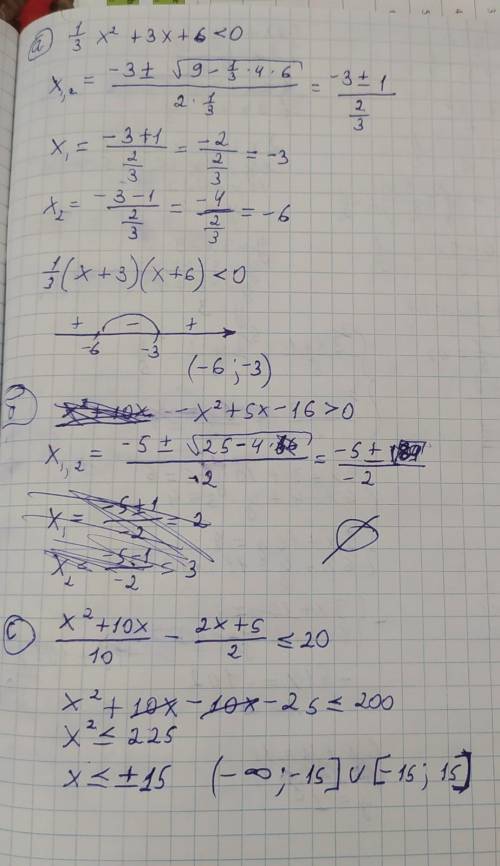 а) 1/3 x² + 3x + 6 < 0
x₁,₂ = (-3 ± √(9 - 1/3 · 4 · 6)) / (2 · 1/3) = (-3 ± 1) / (2/3)
x₁ = (-3+1) / (2/3) = (-2) / (2/3) = -3
x₂ = (-3-1) / (2/3) = (-4) / (2/3) = -6
1/3 (x+3)(x+6) < 0
+ - +
-6 -3
(-6 ; -3)
б) x² + 10x - x² + 5x - 16 > 0
x₁,₂ = (-5 ± √(25 - 4 ·)) / (-2) = (-5 ±) / (-2)
x₁ = (-5+1) / (-2) = 2
x₂ = (-5-1) / (-2) = 3
∅
c) (x² + 10x) / 10 - (2x + 5) / 2 ≤ 20
x² + 10x - 10x - 25 ≤ 200
x² ≤ 225
x ≤ ±15 (-∞ ; -15] ∪ [-15 ; 15]